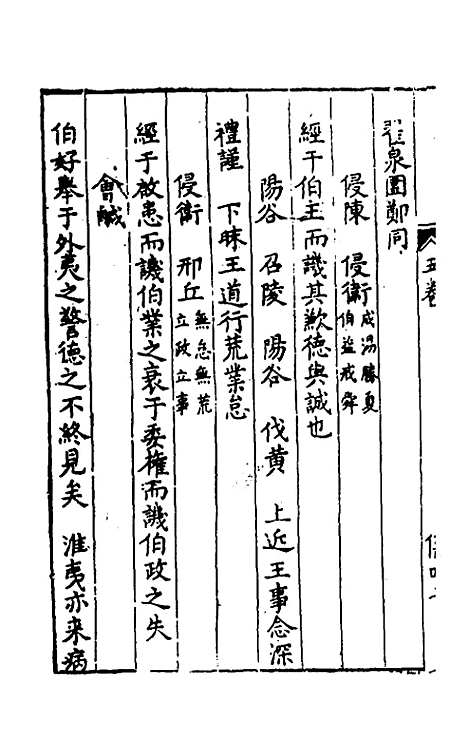 翟泉圍鄭同
侵陳　侵衛 成湯勝夏 伯益戒舜
經于伯主而譏其歉德與誠也
陽谷　召陵　陽谷　伐黃　上近王事念深
禮謹　下昧王道行荒業怠
侵衛　邢丘 無怠無荒 立政立事
經于救患而譏伯業之衰于委權而譏伯政之失
會鹹
伯好舉于外夷之警德之不終見矣　淮夷亦来病
五卷